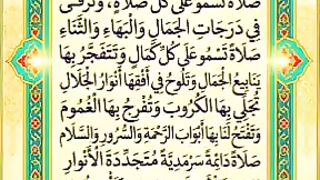 صَلَاةً تَسْمُو عَلَى كُلِّ صَلَاةٍ، وَتَرْقَى
فِي دَرَجَاتِ الْجَمَالِ وَالْبَهَاءِ وَالثَّنَاءِ
صَلَاةً تَسْمُو عَلَى كُلِّ كَمَالٍ وَتَتَفَجَّرُ بِهَا
يَنَابِيعُ الْجَمَالِ وَتَلُوحُ فِي أُفُقِهَا أَنْوَارُ الْجَلَالِ
تُجَلِّي بِهَا الْكُرُوبَ وَتُفَرِّجُ بِهَا الْغُمُومَ
وَتَفْتَحُ لَنَا بِهَا أَبْوَابَ الرَّحْمَةِ وَالسُّرُورِ وَالسَّلَامِ
صَلَاةً دَائِمَةً سَرْمَدِيَّةً مُتَجَدِّدَةَ الْأَنْوَارِ